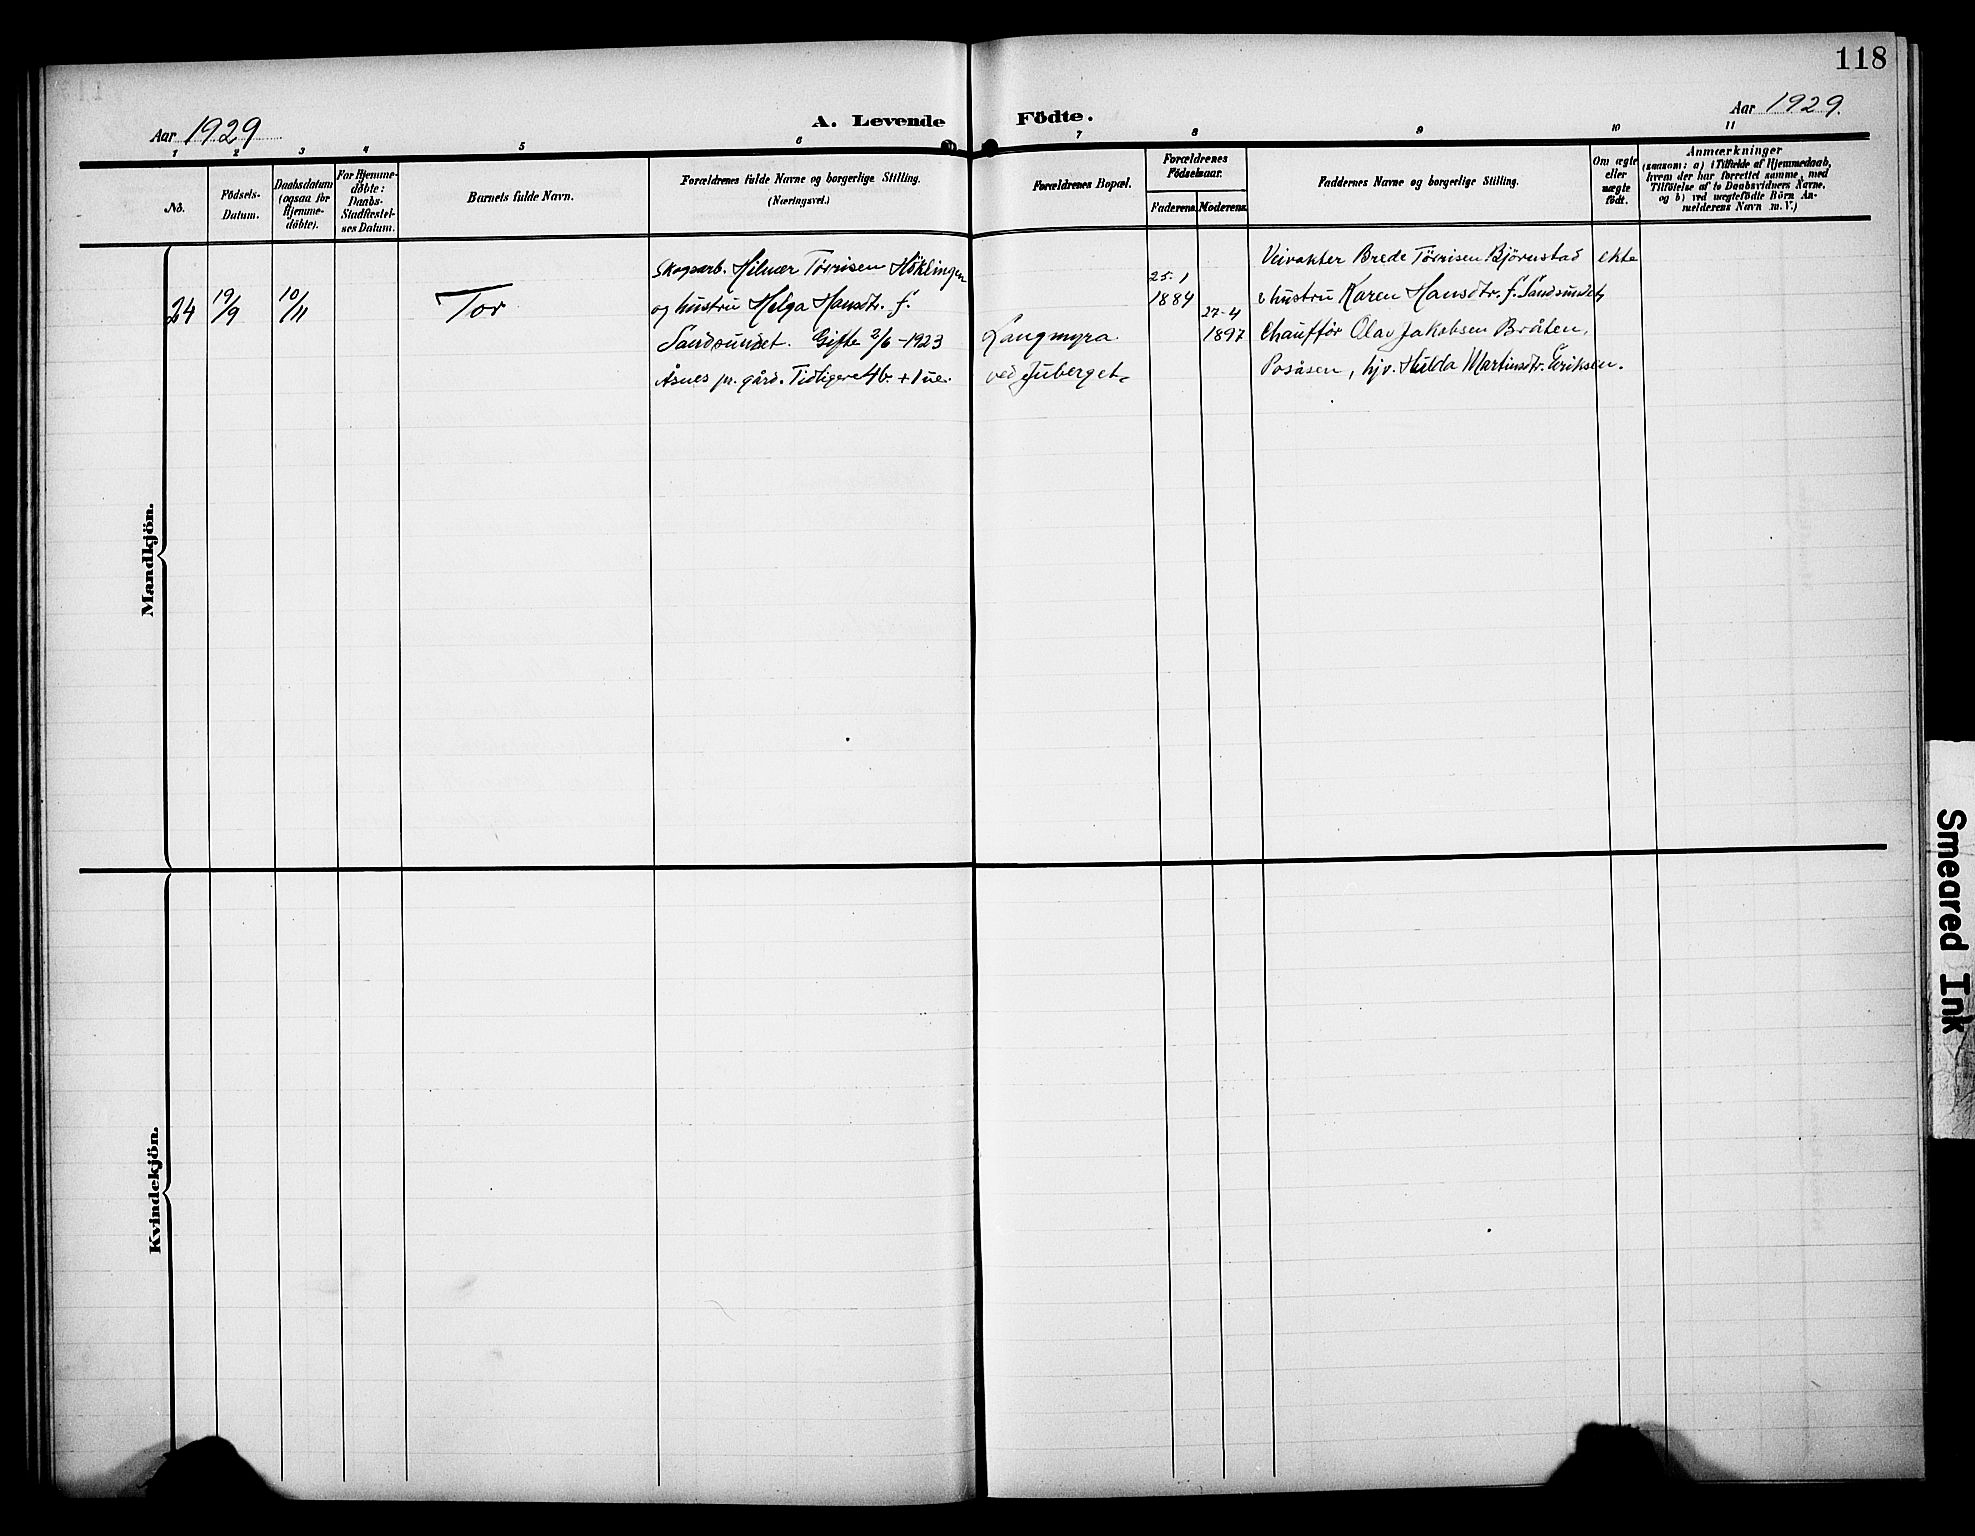 118
Aar 1929
A. Levende Födte.
Aar 1929.
1 2 3 4 5 6 7 8 9 10 11
No.
Födsels-
Datum.
Daabsdatum
(ogsaa for
Hjemme-
døbte).
For Hjemme-
døbte:
Daabs-
Stadfæstel-
ses Datum.
Barnets fulde Navn.
Forældrenes fulde Navne og borgerlige Stilling.
(Næringsvei.)
Forældrenes Bopæl.
Forældrenes
Födselsaar.
Faderens. Moderens.
Faddernes Navne og borgerlige Stilling.
Om ægte
eller
uægte
født.
Anmærkninger
(saasom: a) i Tilfælde af Hjemmedaab,
hvem der har forrettet samme, med
Tilföielse af to Daabsvidners Navne,
og b) ved uægtefødte Börn An-
melderens Navn m. V.)
Mandkjön.
24
19/9
10/11
Tor
Skogsarb. Hilmer Tørrisen Höklingen
og hustru Helga Hansdtr. f.
Sandsundet. Gifte 2/6-1923
Åsnes pr. gård. Tidligere 4b.
Langmyra
ved Juberget
25-1
1884
27-4
1897
Veivokter Brede Tørrisen Bjørnstad
hustru Karen Hansdtr. f. Sandsundet,
Chauffør Olav Jakobsen Bråten,
Posåsen, hjv. Hulda Martinsdtr. Eriksen.
ekte
Kvindekjön.
Smeared Ink